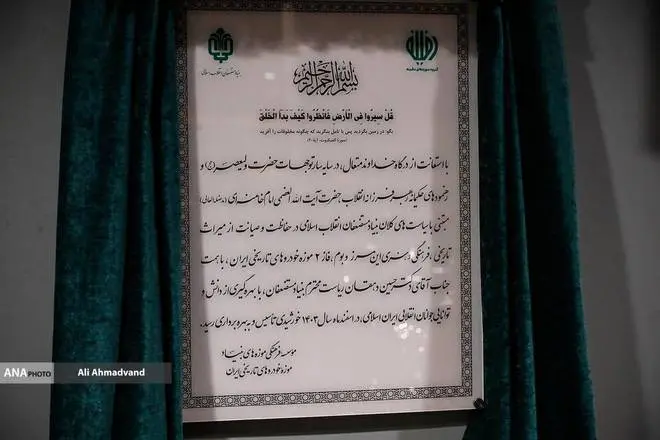 بنیاد مستضعفان انقلاب اسلامی
بسم الله الرحمن الرحیم
قُل سیرُوا فِی الأَرضِ فَانظُرُوا کَیفَ بَدَأَ الخَلقَ
بگو: در زمین بگردید پس با تامل بنگرید که چگونه مخلوقات را آفرید
با استعانت از درگاه خداوند متعال، در سایه سار توجهات حضرت ولیعصر (عج) و
رهنمودهای حکیمانه رهبر فرزانه انقلاب حضرت آیت الله العظمی امام خامنه‌ای (مدظله‌العالی)
مبتنی با سیاست های کلان بنیاد مستضعفان انقلاب اسلامی در حفاظت و صیانت از میراث
تاریخی، فرهنگی و هنری این مرز و بوم، فاز ۲ موزه خودروهای تاریخی ایران، با همت
جناب آقای دکتر حسین دهقان ریاست محترم بنیاد مستضعفان، با بهره‌گیری از دانش و
توانایی جوانان انقلابی ایران اسلامی، در اسفند ماه سال ۱۴۰۳ خورشیدی تاسیس و به بهره برداری رسید.
مؤسسه فرهنگی موزه های بنیاد
موزه خودروهای تاریخی ایران
ANA PHOTO Ali Ahmadvand